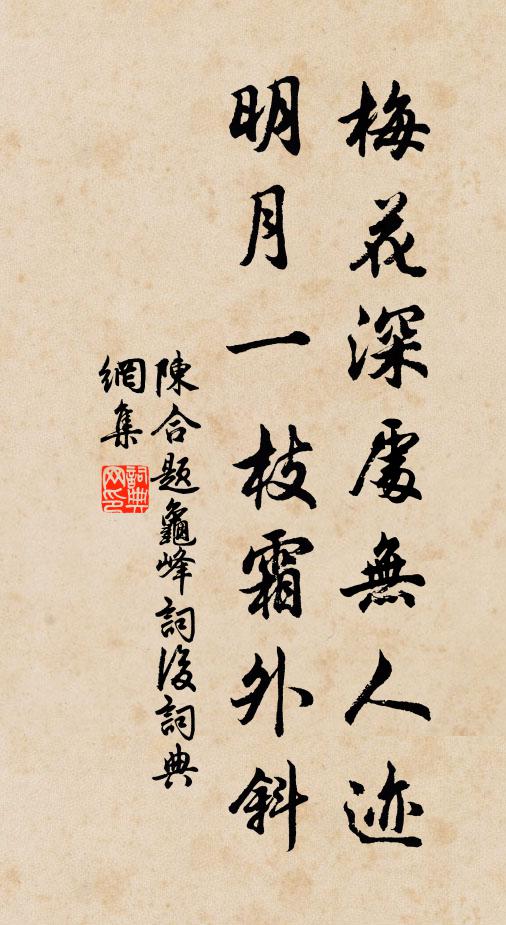 梅花深處無人迹
明月一枝霜外斜
陳合題龜峰詞後詞典
網集
詞典
网印